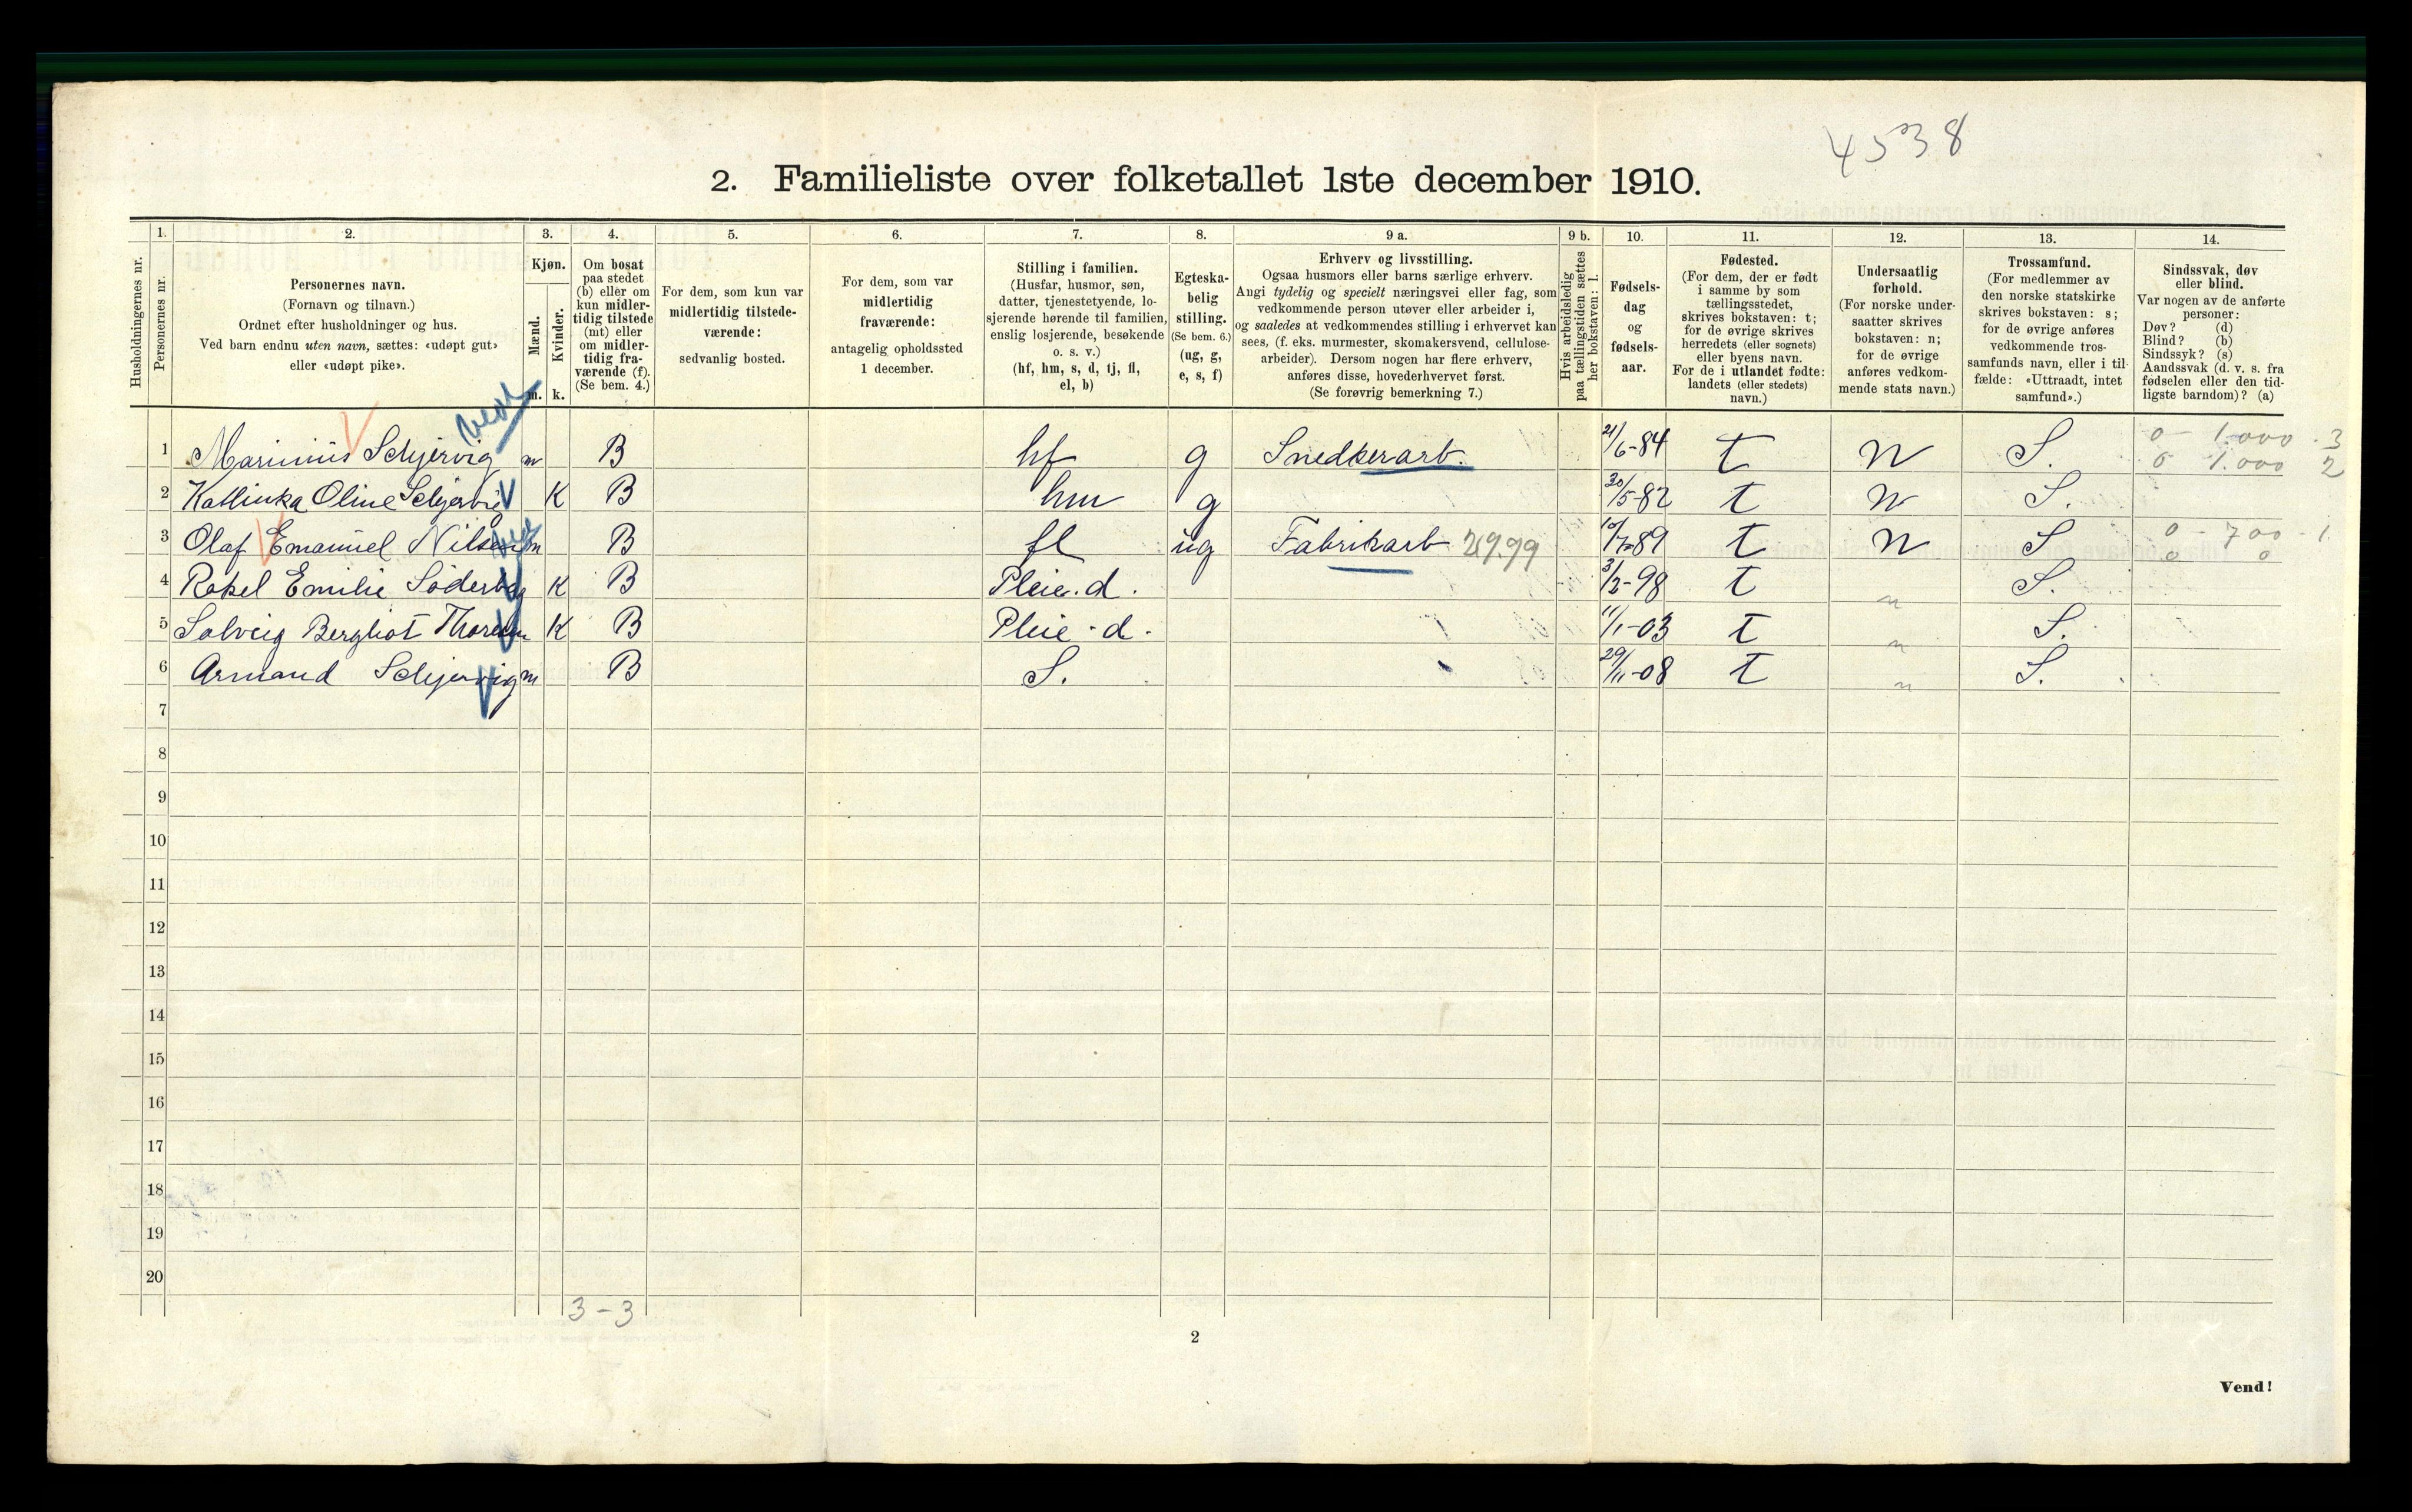 4538
2. Familieliste over folketallet 1ste december 1910.
Husholdningernes nr.
1.
Personernes nr.
2.
Personernes navn.
(Fornavn og tilnavn.)
Ordnet efter husholdninger og hus.
Ved barn endnu uten navn, sættes: «udøpt gut»
eller «udøpt pike».
3.
Kjøn.
Mænd.
Kvinder.
m. k.
4.
Om bosat
paa stedet
(b) eller om
kun midler-
tidig tilstede
(mt) eller
om midler-
tidig fra-
værende (f).
(Se bem. 4.)
5.
For dem, som kun var
midlertidig tilstede-
værende:
sedvanlig bosted.
6.
For dem, som var
midlertidig
fraværende:
antagelig opholdssted
1 december.
7.
Stilling i familien.
(Husfar, husmor, søn,
datter, tjenestetyende, lo-
sjerende hørende til familien,
enslig losjerende, besøkende
o. s. v.)
(hf, hm, s, d, tj, fl,
el, b)
8.
Egteska-
belig
stilling.
(Se bem. 6.)
(ug, g,
e, s, f)
9 a.
Erhverv og livsstilling.
Ogsaa husmors eller barns særlige erhverv.
Angi tydelig og specielt næringsvei eller fag, som
vedkommende person utøver eller arbeider i,
og saaledes at vedkommendes stilling i erhvervet kan
sees, (f. eks. murmester, skomakersvend, cellulose-
arbeider). Dersom nogen har flere erhverv,
anføres disse, hovederhvervet først.
(Se forøvrig bemerkning 7.)
9 b.
Hvis arbeidsledig
paa tællingstiden sættes
her bokstaven: l.
10.
Fødsels-
dag
og
fødsels-
aar.
11.
Fødested.
(For dem, der er født
i samme by som
tællingsstedet,
skrives bokstaven: t;
for de øvrige skrives
herredets (eller sognets)
eller byens navn.
For de i utlandet fødte:
landets (eller stedets)
navn.)
12.
Undersaatlig
forhold.
(For norske under-
saatter skrives
bokstaven: n;
for de øvrige
anføres vedkom-
mende stats navn.)
13.
Trossamfund.
(For medlemmer av
den norske statskirke
skrives bokstaven: s;
for de øvrige anføres
vedkommende tros-
samfunds navn, eller i til-
fælde: «Uttraadt, intet
samfund».)
14.
Sindssvak, døv
eller blind.
Var nogen av de anførte
personer:
Døv? (d)
Blind? (b)
Sindssyk? (s)
Aandssvak (d. v. s. fra
fødselen eller den tid-
ligste barndom)? (a)
1 Marinius Schjervig m B hf g Snedkerarb. 21/6-84 t n S. 0 - 1.000 - 3
0 1.000 2
2 Kathinka Oline Schjervig K B hm g 30/5-82 t n S.
3 Olaf Emanuel Nilsen m B fl ug Fabrikarb 2999 10/7-89 t n S 0 - 700 - 1
0 0
4 Rakel Emilie Söderberg K B Pleie.d. 3/2-98 t n S.
5 Solveig Bergliot Thoresen K B Pleie-d. 11/1-03 t n S.
6 Armand Schjervig m B S. 29/11-08 t n S.
7
8
9
10
11
12
13
14
15
16
17
18
19
20
3-3
2
Vend!